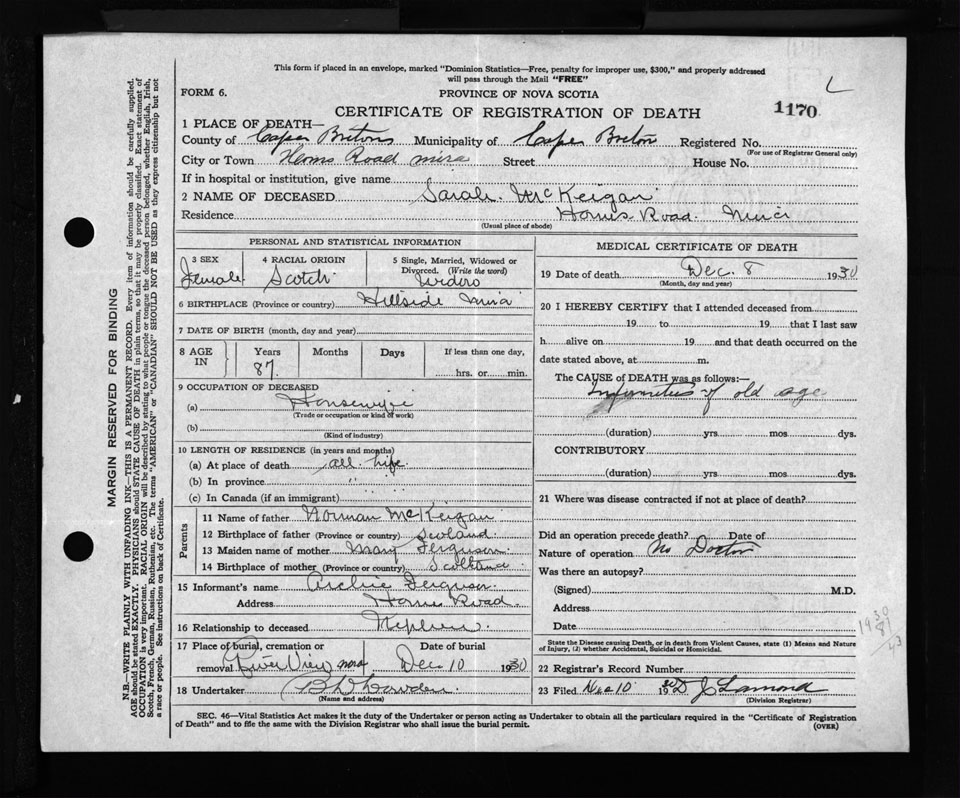 This form if placed in an envelope, marked "Dominion Statistics—Free, penalty for improper use, $300," and properly addressed
will pass through the Mail "FREE"
FORM 6.
PROVINCE OF NOVA SCOTIA
CERTIFICATE OF REGISTRATION OF DEATH
1170
L
1 PLACE OF DEATH—
County of Cape Breton Municipality of Cape Breton Registered No.
(For use of Registrar General only)
City or Town Horns Road Mira Street House No.
If in hospital or institution, give name
2 NAME OF DECEASED Sarah McKeigan
Residence Horns Road Mira
(Usual place of abode)
PERSONAL AND STATISTICAL INFORMATION
3 SEX
Female
4 RACIAL ORIGIN
Scotch
5 Single, Married, Widowed or
Divorced. (Write the word)
Widow
6 BIRTHPLACE (Province or country) Hillside Mira
7 DATE OF BIRTH (month, day and year)
8 AGE
IN
Years
87
Months
Days
If less than one day,
hrs. or min.
9 OCCUPATION OF DECEASED
(a) Housewife
(Trade or occupation or kind of work)
(b)
(Kind of industry)
10 LENGTH OF RESIDENCE (in years and months)
(a) At place of death all life
(b) In province " "
(c) In Canada (if an immigrant)
Parents
11 Name of father Norman McKeigan
12 Birthplace of father (Province or country) Scotland
13 Maiden name of mother Mary Ferguson
14 Birthplace of mother (Province or country) Scotland
15 Informant's name Archie Ferguson
Address Horns Road
16 Relationship to deceased Nephew
17 Place of burial, cremation or
removal River View Mira
Date of burial
Dec 10 1930
18 Undertaker
(Name and address)
MEDICAL CERTIFICATE OF DEATH
19 Date of death Dec. 8 1930
(Month, day and year)
20 I HEREBY CERTIFY that I attended deceased from
19 to 19 that I last saw
h alive on 19 and that death occurred on the
date stated above, at m.
The CAUSE of DEATH was as follows:—
Infirmities of old age
(duration) yrs mos dys.
CONTRIBUTORY
(duration) yrs mos dys.
21 Where was disease contracted if not at place of death?
Did an operation precede death? Date of
Nature of operation No Doctor
Was there an autopsy?
(Signed) M.D.
Address
Date
1930
81
43
State the Disease causing Death, or in death from Violent Causes, state (1) Means and Nature
of Injury, (2) whether Accidental, Suicidal or Homicidal.
22 Registrar's Record Number
23 Filed 10 19 D J Lamond
(Division Registrar)
SEC. 46—Vital Statistics Act makes it the duty of the Undertaker or person acting as Undertaker to obtain all the particulars required in the "Certificate of Registration
of Death" and to file the same with the Division Registrar who shall issue the burial permit.
(OVER)
MARGIN RESERVED FOR BINDING
N.B.—WRITE PLAINLY WITH UNFADING INK—THIS IS A PERMANENT RECORD. Every item of information should be carefully supplied.
AGE should be stated EXACTLY. PHYSICIANS should STATE CAUSE OF DEATH in plain terms, so that it may be properly classified. Exact statement of
OCCUPATION is very important. RACIAL ORIGIN will be described by stating to what people or tongue the deceased person belonged, whether English, Irish,
Scotch, French, German, Russian, Ruthenian, etc. The terms "AMERICAN" or "CANADIAN" SHOULD NOT BE USED as they express citizenship but not
a race or people. See instructions on back of Certificate.